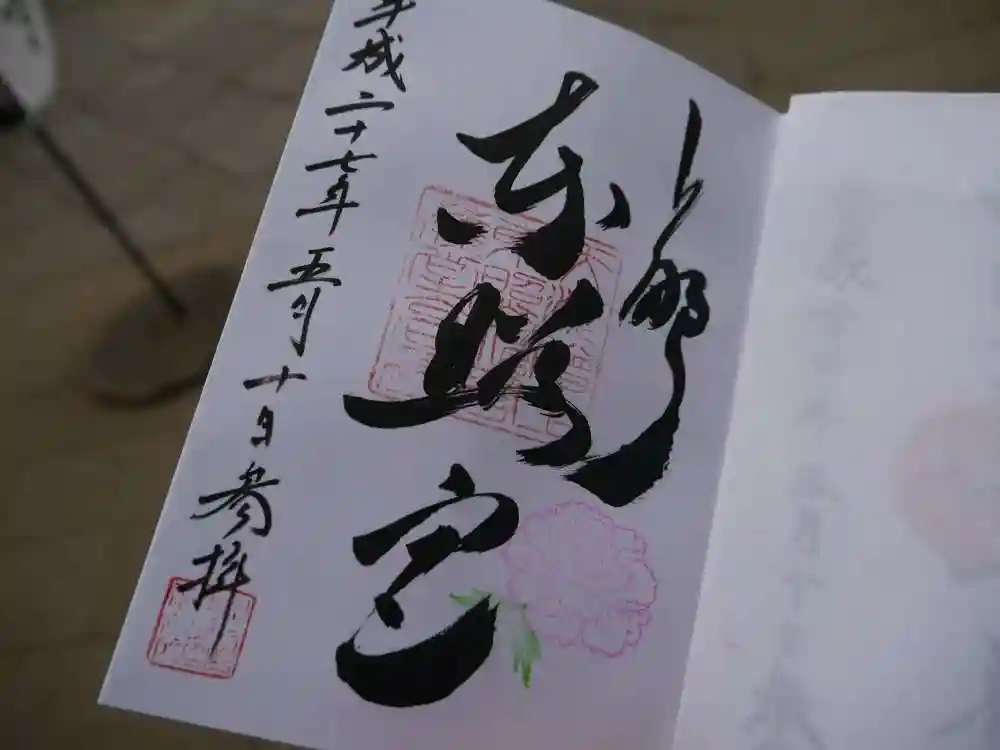 上野
東照宮
平成二十七年五月十日参拝